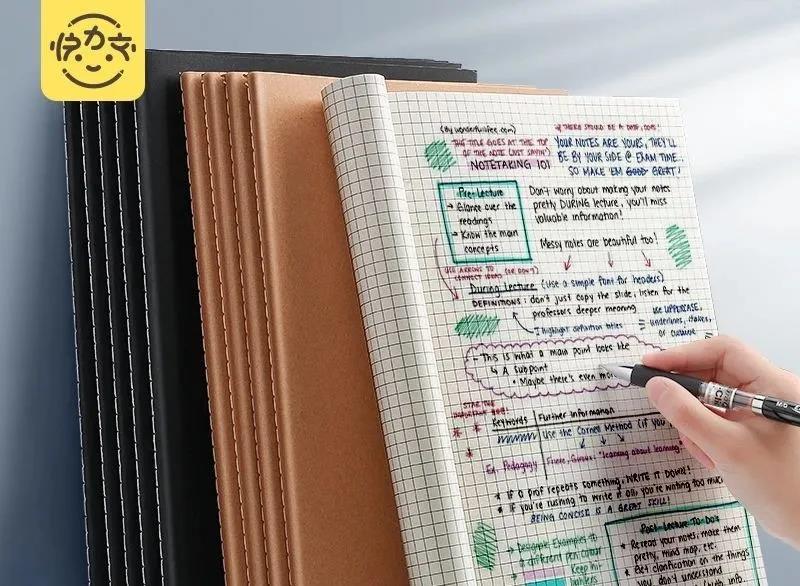 快力文
(By wonderfulifee.com)
THE TITLE GOES AT THE TOP
OF THE NOTE (JUST SAYIN')
NOTETAKING 101
THERE SHOULD BE A DATE, DOES!
YOUR NOTES ARE YOURS, THEY'LL
BE BY YOUR SIDE @ EXAM TIME.
SO MAKE 'EM GOOD GREAT!
Pre-Lecture
→ Glance over the
readings
→ Know the main
concepts
Don't worry about making your notes
pretty DURING lecture, you'll miss
valuable information!
Messy notes are beautiful too!
USE ARROWS TO
CONNECT IDEAS (OR DON'T)
During Lecture (use a simple font for headers)
DEFINITIONS: don't just copy the slide, listen for the
professors deeper meaning
I highlight definition titles
use UPPERCASE,
underlines, italics,
or cursive
- This is what a main point looks like
↳ A subpoint
• Maybe there's even mo
STAR THE
IMPORTANT
Keywords | Further Information
Use the Cornell Method (if you
Ex. Pedagogy "learning about learning"
* IF a prof repeats something, WRITE IT DOWN!
* if you're rushing to write it all, you're writing too much
BEING CONCISE IS A GREAT SKILL!
Designate Examples to
a different pen colour
Keep hi-
lighters
Post Lecture To Do's
* Reread your notes, make them
pretty, mind map, etc.
* Get clarification on the things
you don't understand